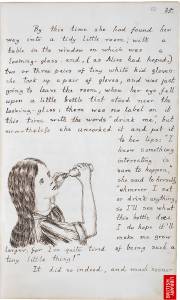 35.
By this time she had found her
way into a tidy little room, with a
table in the window on which was a
looking-glass and, (as Alice had hoped,)
two or three pairs of tiny white kid gloves:
she took up a pair of gloves, and was just
going to leave the room, when her eye fell
upon a little bottle that stood near the
looking-glass: there was no label on it
this time with the words "drink me," but
nevertheless she uncorked it and put it
to her lips: "I
know something
interesting is
sure to happen,"
she said to herself,
"whenever I eat
or drink anything,
so I'll see what
this bottle does.
I do hope it'll
make me grow
larger, for I'm quite tired of being such a
tiny little thing!"
It did so indeed, and much sooner